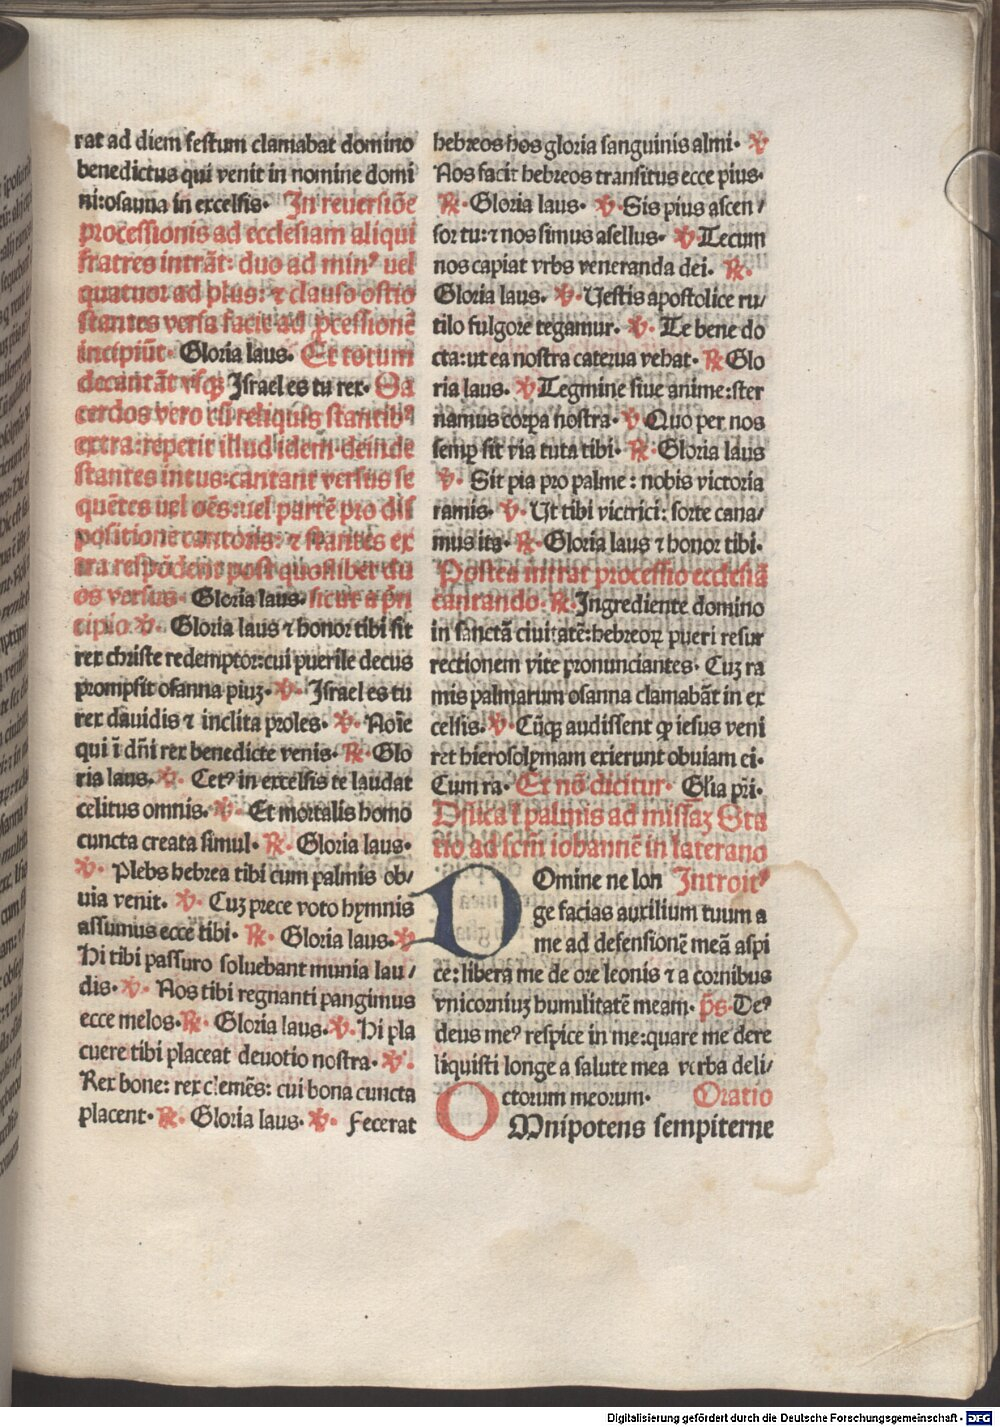 rat ad diem festum clamabat domino
benedictus qui venit in nomine domi
ni:osanna in excelsis. In reuersiõe
processionis ad ecclesiam aliqui
fratres intrãt: duo ad minꝰ uel
quatuor ad plus: ⁊ clauso ostio
stantes versa facie ad ꝓcessionẽ
incipiũt. Gloria laus. Et totum
decantãt vsqꝫ Israel es tu rex. Sa
cerdos vero cũ reliquis stantibꝰ
extra:repetit illud idem. deinde
stantes intus:cantant versus se
quẽtes uel oẽs:uel partẽ pro dis
positione cantoris: ⁊ stantes ex
tra respõdent post quoslibet du
os versus. Gloria laus. sicut a pñ
cipio. ℣. Gloria laus ⁊ honor tibi sit
rex christe redemptor:cui puerile decus
prompsit osanna piuꝫ. ℣. Israel es tu
rex dauidis ⁊ inclita proles. ℣. Noĩe
qui ĩ dñi rex benedicte venis. ℟. Glo
ria laus. ℣. Cetꝰ in excelsis te laudat
celitus omnis. ℣. Et mortalis homo
cuncta creata simul. ℟. Gloria laus.
℣. Plebs hebrea tibi cum palmis ob/
uia venit. ℣. Cuꝫ prece voto hymnis
assumus ecce tibi. ℟. Gloria laus. ℣
Hi tibi passuro soluebant munia lau/
dis. ℣. Nos tibi regnanti pangimus
ecce melos. ℟. Gloria laus. ℣. Hi pla
cuere tibi placeat deuotio nostra. ℣.
Rex bone: rex clemẽs: cui bona cuncta
placent. ℟. Gloria laus. ℣. Fecerat
hebreos hos gloria sanguinis almi. ℣
Nos facit hebreos transitus ecce pius.
℟. Gloria laus. ℣. Sis pius ascen/
sor tu:⁊ nos simus asellus. ℣. Tecum
nos capiat vrbs veneranda dei. ℟.
Gloria laus. ℣. Uestis apostolice ru/
tilo fulgore tegamur. ℣. Te bene do
cta:ut ea nostra caterua vehat. ℟ Glo
ria laus. ℣ Tegmine siue anime:ster
namus corꝑa nostra. ℣ Quo per nos
semꝑ sit via tuta tibi. ℟. Gloria laus
℣. Sit pia pro palme: nobis victoria
ramis. ℣. Ut tibi victrici: sorte cana/
mus ita. ℟. Gloria laus ⁊ honor tibi.
Postea intrat processio ecclesiã
cantando. ℟. Ingrediente domino
in sanctã ciuitatẽ:hebreoꝝ pueri resur
rectionem vite pronunciantes. Cuꝫ ra
mis palmarum osanna clamabãt in ex
celsis. ℣. Cũqꝫ audissent ꝙ iesus veni
ret hierosolymam exierunt obuiam ei.
Cum ra. Et nõ dicitur. Glia pr̃i.
Dñica ĩ palmis ad missaꝫ Sta
tio ad scm̃ iohannẽ in laterano
DOmine ne lon Introitꝰ
ge facias auxilium tuum a
me ad defensionẽ meã aspi
ce:libera me de ore leonis ⁊ a cornibus
vnicorniuꝫ humilitatẽ meam. p̃s. Deꝰ
deus meꝰ respice in me:quare me dere
liquisti longe a salute mea verba deli/
ctorum meorum. Oratio
OMnipotens sempiterne
Digitalisierung gefördert durch die Deutsche Forschungsgemeinschaft - DFG